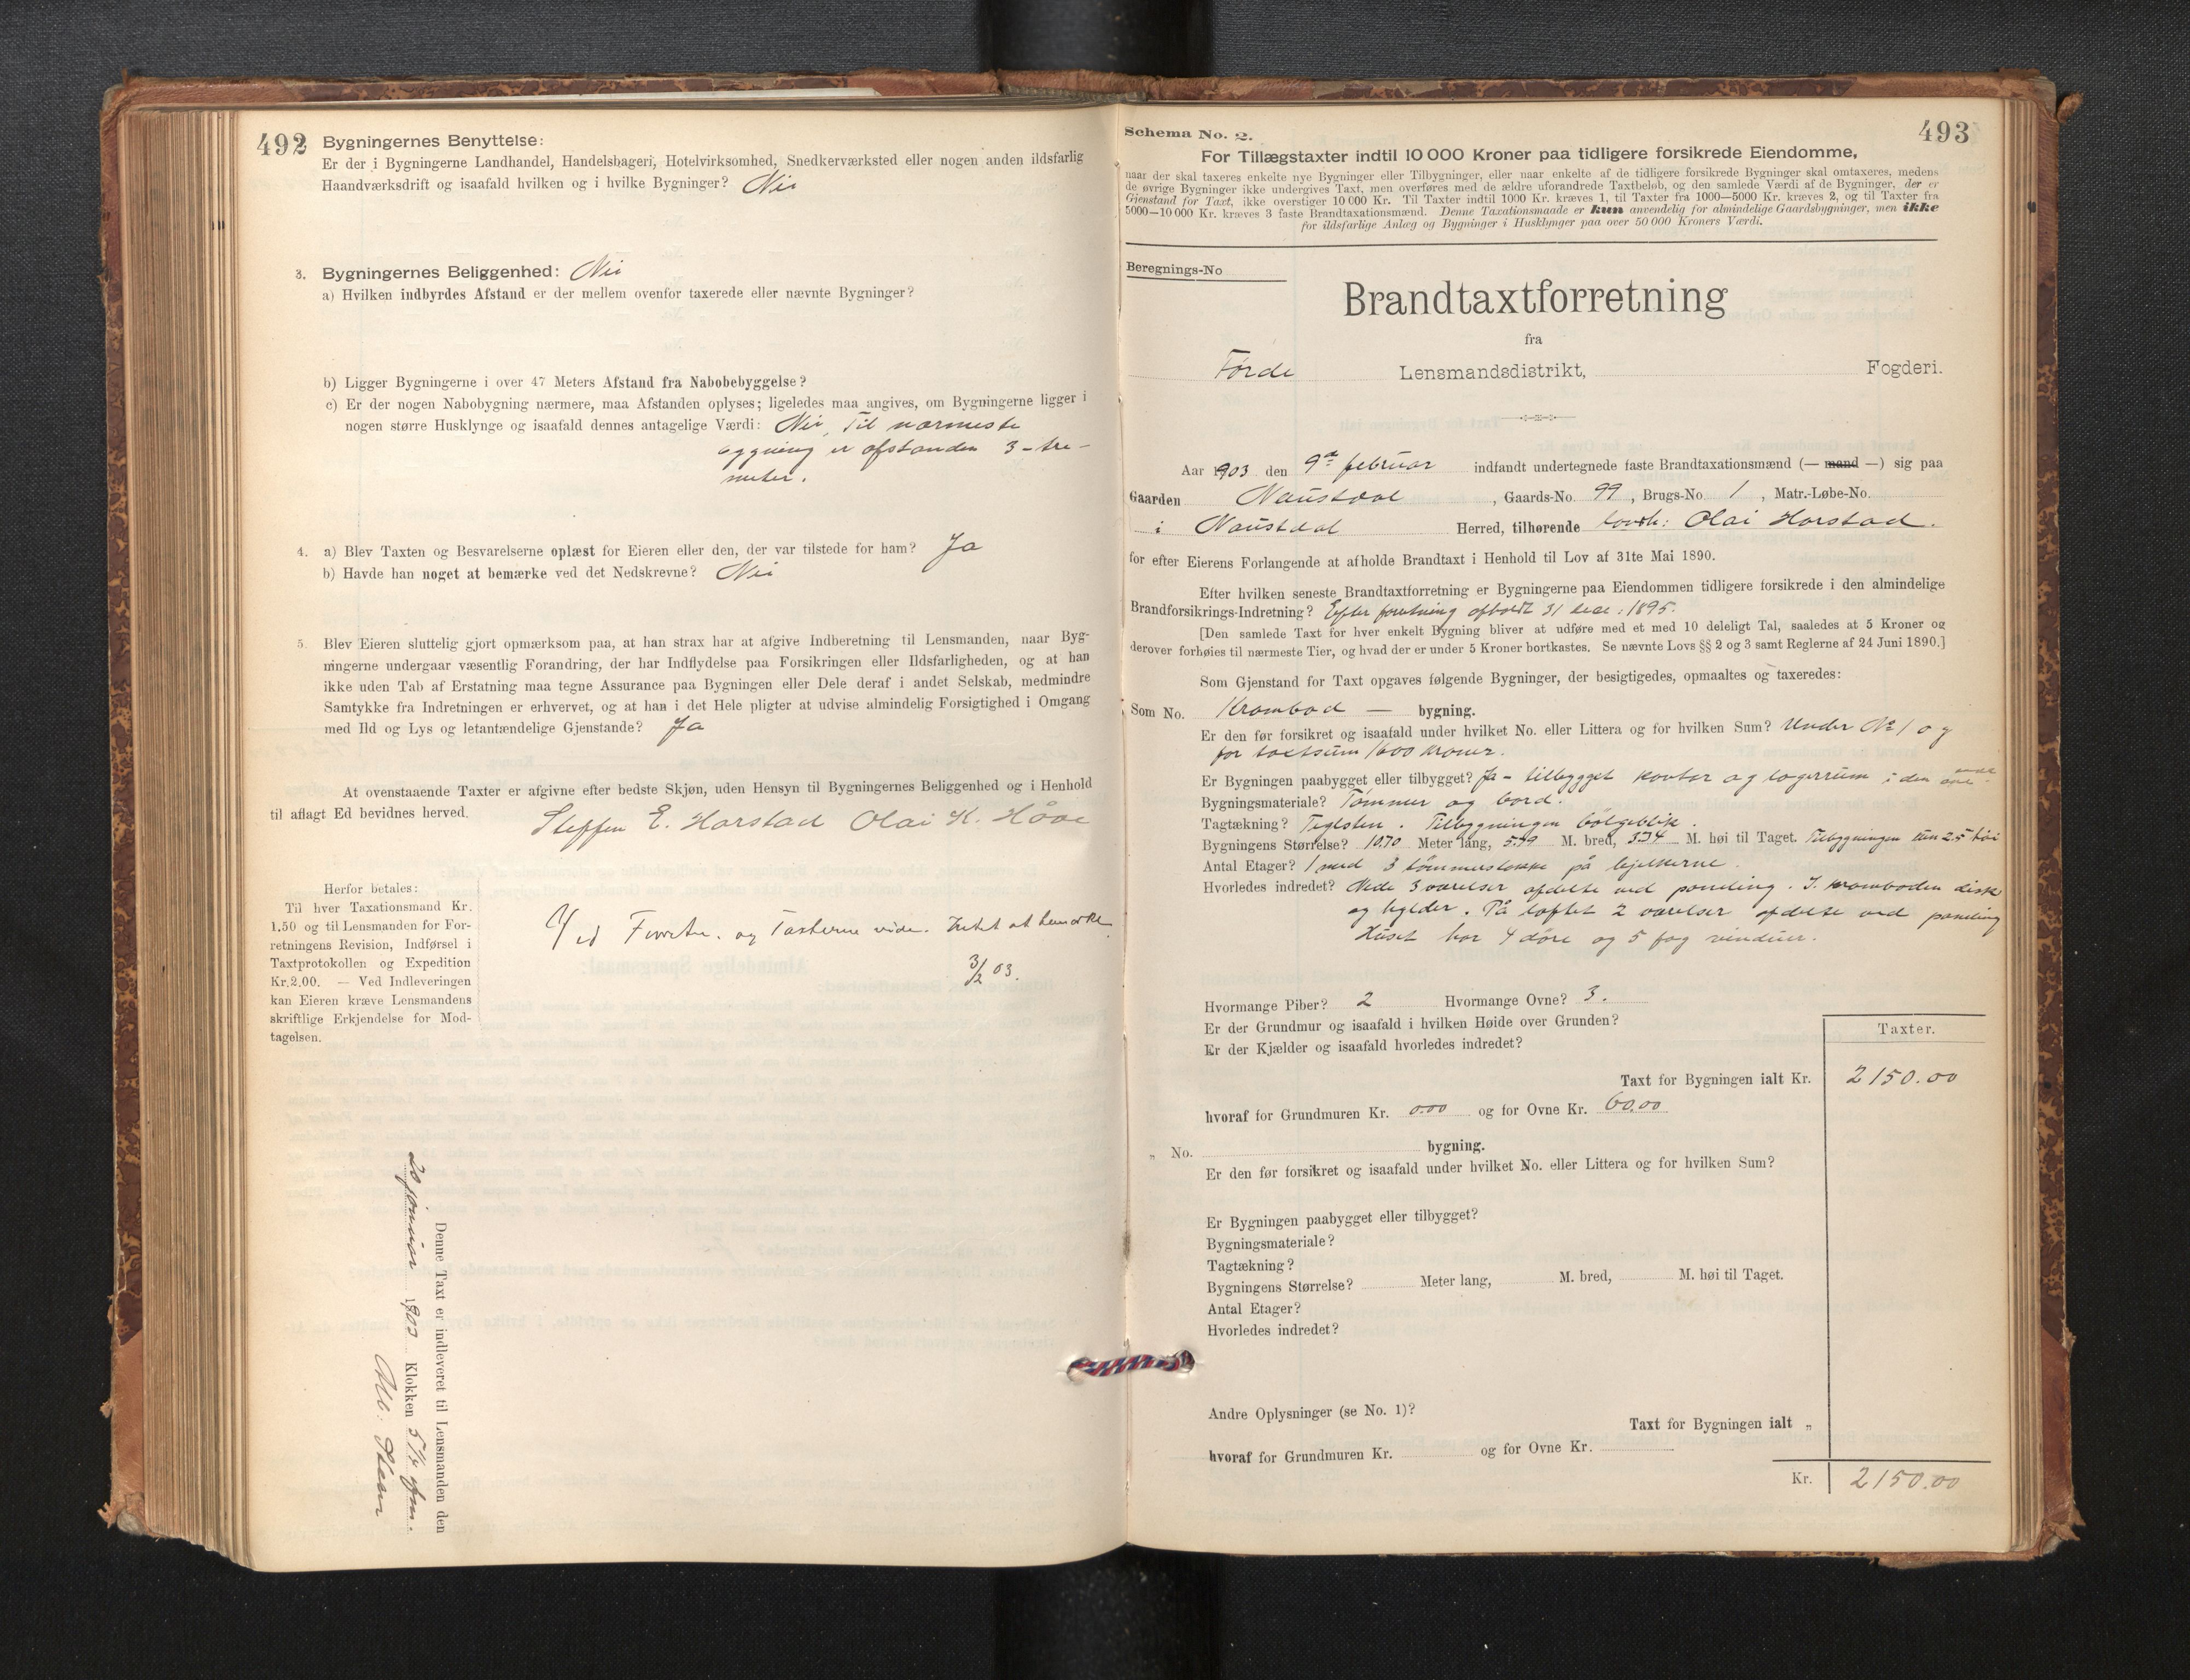 492
Bygningernes Benyttelse:
Er der i Bygningerne Landhandel, Handelsbageri, Hotelvirksomhed, Snedkerværksted eller nogen anden ildsfarlig
Haandværksdrift og isaafald hvilken og i hvilke Bygninger? Nei
3. Bygningernes Beliggenhed: Nei
a) Hvilken indbyrdes Afstand er der mellem ovenfor taxerede eller nævnte Bygninger?
b) Ligger Bygningerne i over 47 Meters Afstand fra Nabobebyggelse?
c) Er der nogen Nabobygning nærmere, maa Afstanden oplyses; ligeledes maa angives, om Bygningerne ligger i
nogen større Husklynge og isaafald dennes antagelige Værdi: Nei, Til nærmeste
bygning er afstanden 3 - tre -
meter.
4. a) Blev Taxten og Besvarelserne oplæst for Eieren eller den, der var tilstede for ham? Ja
b) Havde han noget at bemærke ved det Nedskrevne? Nei
5. Blev Eieren sluttelig gjort opmærksom paa, at han strax har at afgive Indberetning til Lensmanden, naar Byg-
ningerne undergaar væsentlig Forandring, der har Indflydelse paa Forsikringen eller Ildsfarligheden, og at han
ikke uden Tab af Erstatning maa tegne Assurance paa Bygningen eller Dele deraf i andet Selskab, medmindre
Samtykke fra Indretningen er erhvervet, og at han i det Hele pligter at udvise almindelig Forsigtighed i Omgang
med Ild og Lys og letantændelige Gjenstande? Ja
At ovenstaaende Taxter er afgivne efter bedste Skjøn, uden Hensyn til Bygningernes Beliggenhed og i Henhold
til aflagt Ed bevidnes herved.
Steffen E. Horstad Olai K. Håve
Herfor betales:
Til hver Taxationsmand Kr.
1.50 og til Lensmanden for For-
retningens Revision, Indførsel i
Taxtprotokollen og Expedition
Kr. 2.00. — Ved Indleveringen
kan Eieren kræve Lensmandens
skriftlige Erkjendelse for Mod-
tagelsen.
Ved Forretn. og Taxterne vides Intet at bemærke
03.
Denne Taxt er indleveret til Lensmanden den
20 januar 1903 Klokken 5 1/2 fm.
Alb:
493
Schema No. 2.
For Tillægstaxter indtil 10 000 Kroner paa tidligere forsikrede Eiendomme,
naar der skal taxeres enkelte nye Bygninger eller Tilbygninger, eller naar enkelte af de tidligere forsikrede Bygninger skal omtaxeres, medens
de øvrige Bygninger ikke undergives Taxt, men overføres med de ældre uforandrede Taxtbeløb, og den samlede Værdi af de Bygninger, der er
Gjenstand for Taxt, ikke overstiger 10 000 Kr. Til Taxter indtil 1000 Kr. kræves 1, til Taxter fra 1000—5000 Kr. kræves 2, og til Taxter fra
5000—10 000 Kr. kræves 3 faste Brandtaxationsmænd. Denne Taxationsmaade er kun anvendelig for almindelige Gaardsbygninger, men ikke
for ildsfarlige Anlæg og Bygninger i Husklynger paa over 50 000 Kroners Værdi.
Beregnings-No
Brandtaxtforretning
fra
Førde Lensmandsdistrikt, Fogderi.
Aar 1903 den 9de februar indfandt undertegnede faste Brandtaxationsmænd (— mand —) sig paa
Gaarden Naustdal, Gaards-No. 99, Brugs-No. 1, Matr.-Løbe-No.
i Naustdal Herred, tilhørende Olai Horstad.
for efter Eierens Forlangende at afholde Brandtaxt i Henhold til Lov af 31te Mai 1890.
Efter hvilken seneste Brandtaxtforretning er Bygningerne paa Eiendommen tidligere forsikrede i den almindelige
Brandforsikrings-Indretning? Efter forretning afholdt 31 dece: 1895.
[Den samlede Taxt for hver enkelt Bygning bliver at udføre med et med 10 deleligt Tal, saaledes at 5 Kroner og
derover forhøies til nærmeste Tier, og hvad der er under 5 Kroner bortkastes. Se nævnte Lovs §§ 2 og 3 samt Reglerne af 24 Juni 1890.]
Som Gjenstand for Taxt opgaves følgende Bygninger, der besigtigedes, opmaaltes og taxeredes:
Som No. Krambod — bygning.
Er den før forsikret og isaafald under hvilket No. eller Littera og for hvilken Sum? Under No 1 og
for taxtsum 1600 kroner.
Er Bygningen paabygget eller tilbygget? Ja - tilbygget kontor og lagerrum i den
Bygningsmateriale? Tømmer og bord.
Tagtækning? Teglsten. Tilbygningen bølgeblik.
Bygningens Størrelse? 10.70 Meter lang, 5.99 M. bred, 3.34 M. høi til Taget. Tilbygningen kun 2.5 høi
Antal Etager? 1 med 3 tømmerstokke på bjelkerne.
Hvorledes indret? Nede 3 værelser afdelte ved paneling. I kramboden disk
og hylder. På loftet 2 værelser afdelte ved paneling
Huset har 4 døre og 5 fag vinduer.
Hvormange Piber? 2 Hvormange Ovne? 3.
Er der Grundmur og isaafald i hvilken Høide over Grunden?
Er der Kjælder og isaafald hvorledes indredet?
Taxter.
Taxt for Bygningen ialt Kr. 2150.00
hvoraf for Grundmuren Kr. 0.00 og for Ovne Kr. 60.00
„ No. bygning.
Er den før forsikret og isaafald under hvilket No. eller Littera og for hvilken Sum?
Er Bygningen paabygget eller tilbygget?
Bygningsmateriale?
Tagtækning?
Bygningens Størrelse? Meter lang, M. bred, M. høi til Taget.
Antal Etager?
Hvorledes indredet?
Andre Oplysninger (se No. 1)?
Taxt for Bygningen ialt „
hvoraf for Grundmuren Kr. og for Ovne Kr.
Kr. 2150.00